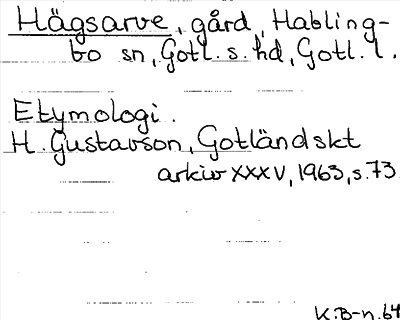 Hägsarve, gård, Habling-
bo sn, Gotl. s. hd, Gotl. l.
Etymologi.
H. Gustavson, Gotländskt
arkiv XXXV, 1963, s. 73.
K.B-n. 64